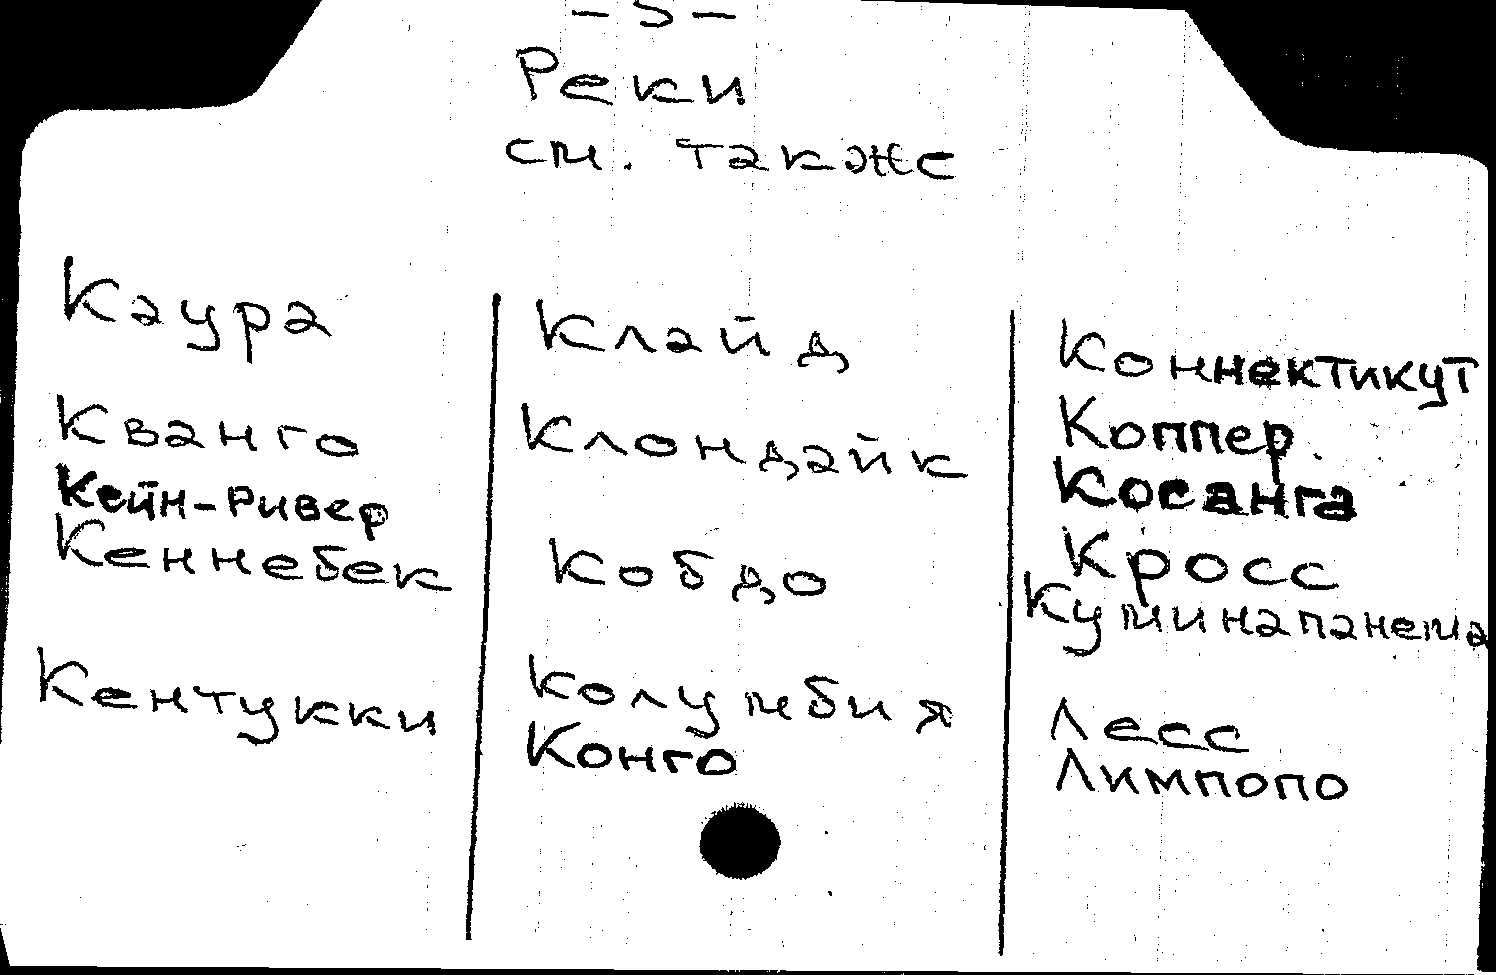 - 5 -
Реки
см. также
Каура
Кванго
Кейн-Ривер
Кеннебек
Кентукки
Клайд
Клондайк
Кобдо
Колумбия
Конго
Коннектикут
Коппер
Косанга
Кросс
Куминапанема
Лесс
Лимпопо